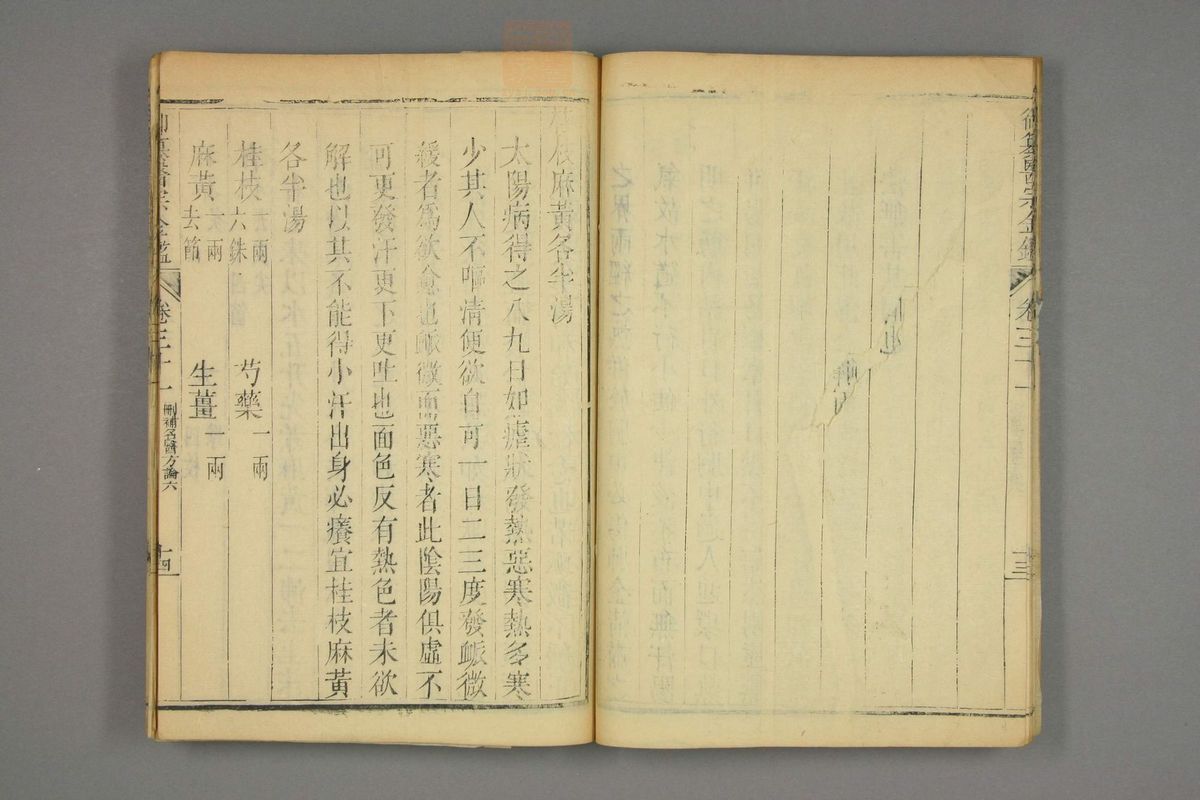 御纂醫宗金鑑 卷三十一 十三
桂枝麻黃各半湯
太陽病得之八九日如瘧狀發熱惡寒熱多寒
少其人不嘔清便欲自可一日二三度發脈微
緩者爲欲愈也脈微而惡寒者此陰陽俱虛不
可更發汗更下更吐也面色反有熱色者未欲
解也以其不能得小汗出身必癢宜桂枝麻黃
各半湯
桂枝一兩六銖 芍藥一兩
麻黃一兩去節 生薑一兩
御纂醫宗金鑑 卷三十一 刪補名醫方論六 十四